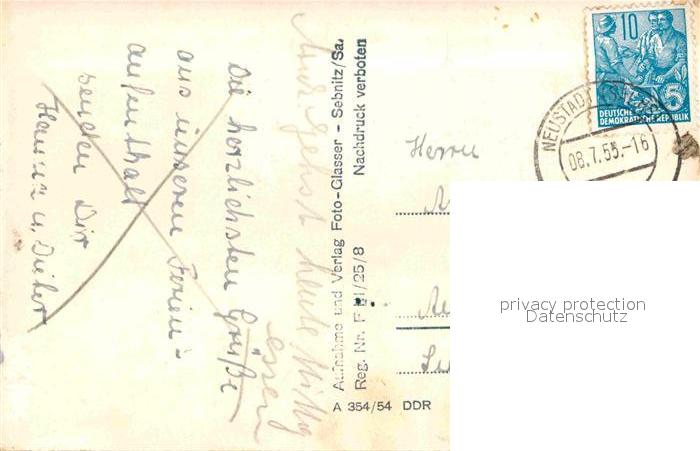 Die herzlichsten Grüße
aus unserem Ferien-
aufenthalt
senden Dir
Hannu u. Dieter
heute Mittag
essen
Aufnahme und Verlag Foto-Glasser - Sebnitz/Sa.
Reg. Nr. F 21/25/8 Nachdruck verboten
A 354/54 DDR
10
5
DEUTSCHE
DEMOKRATISCHE REPUBLIK
NEUSTADT (SACHS)
08.7.55.-16
Herrn
privacy protection
Datenschutz